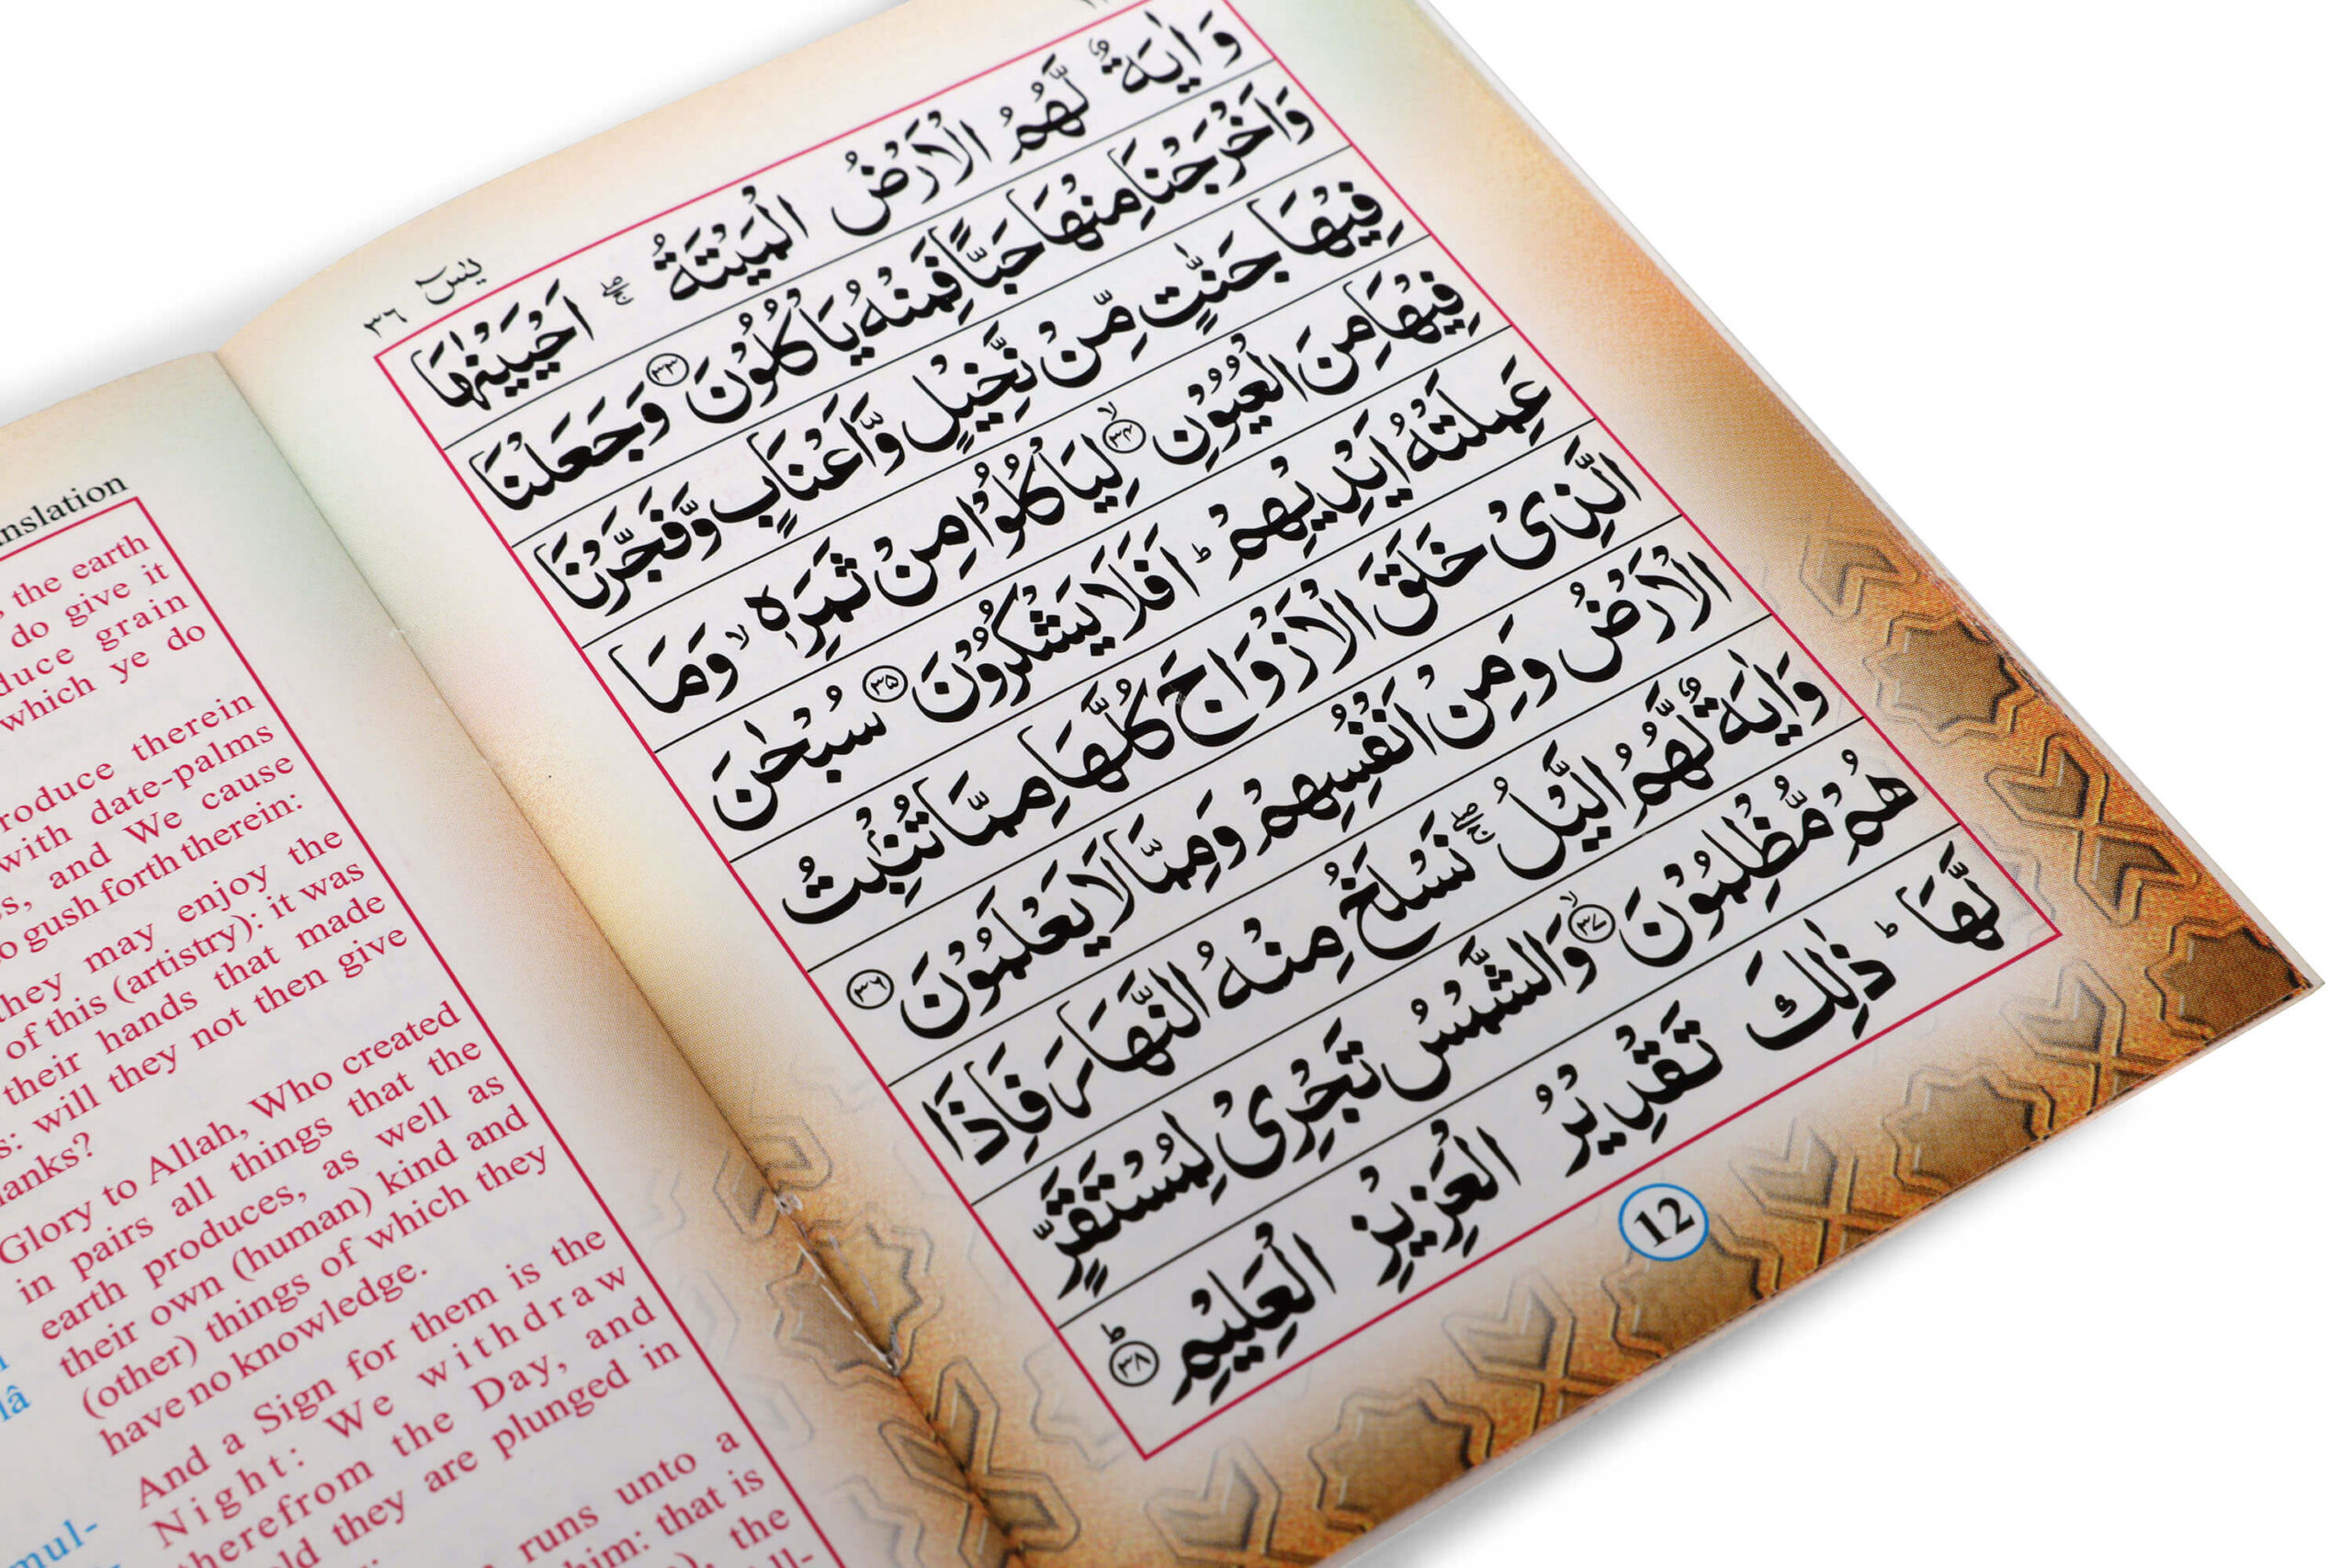 يٰسٓ ٣٦
وَاٰيَةٌ لَّهُمُ الْاَرْضُ الْمَيْتَةُ ۚۖ اَحْيَيْنٰهَا
وَاَخْرَجْنَا مِنْهَا حَبًّا فَمِنْهُ يَاْكُلُوْنَ ﴿۳۳﴾ وَجَعَلْنَا
فِيْهَا جَنّٰتٍ مِّنْ نَّخِيْلٍ وَّاَعْنَابٍ وَّفَجَّرْنَا
فِيْهَا مِنَ الْعُيُوْنِ ﴿۳۴﴾ۙ لِيَاْكُلُوْا مِنْ ثَمَرِهٖ ۙ وَمَا
عَمِلَتْهُ اَيْدِيْهِمْ ؕ اَفَلَا يَشْكُرُوْنَ ﴿۳۵﴾ سُبْحٰنَ
الَّذِيْ خَلَقَ الْاَزْوَاجَ كُلَّهَا مِمَّا تُنْۢبِتُ
الْاَرْضُ وَمِنْ اَنْفُسِهِمْ وَمِمَّا لَا يَعْلَمُوْنَ ﴿۳۶﴾
وَاٰيَةٌ لَّهُمُ الَّيْلُ ۚۖ نَسْلَخُ مِنْهُ النَّهَارَ فَاِذَا
هُمْ مُّظْلِمُوْنَ ﴿۳۷﴾ۙ وَالشَّمْسُ تَجْرِيْ لِمُسْتَقَرٍّ
لَّهَا ؕ ذٰلِكَ تَقْدِيْرُ الْعَزِيْزِ الْعَلِيْمِ ﴿۳۸﴾ؕ
12
the earth
do give it
grain
which ye do
therein
with date-palms
and We cause
gush forth therein:
they may enjoy the
of this (artistry): it was
their hands that made
will they not then give
Glory to Allah, Who created
in pairs all things that the
earth produces, as well as
their own (human) kind and
(other) things of which they
have no knowledge.
And a Sign for them is the
Night: We withdraw
therefrom the Day, and
they are plunged in
runs unto a
him: that is
the